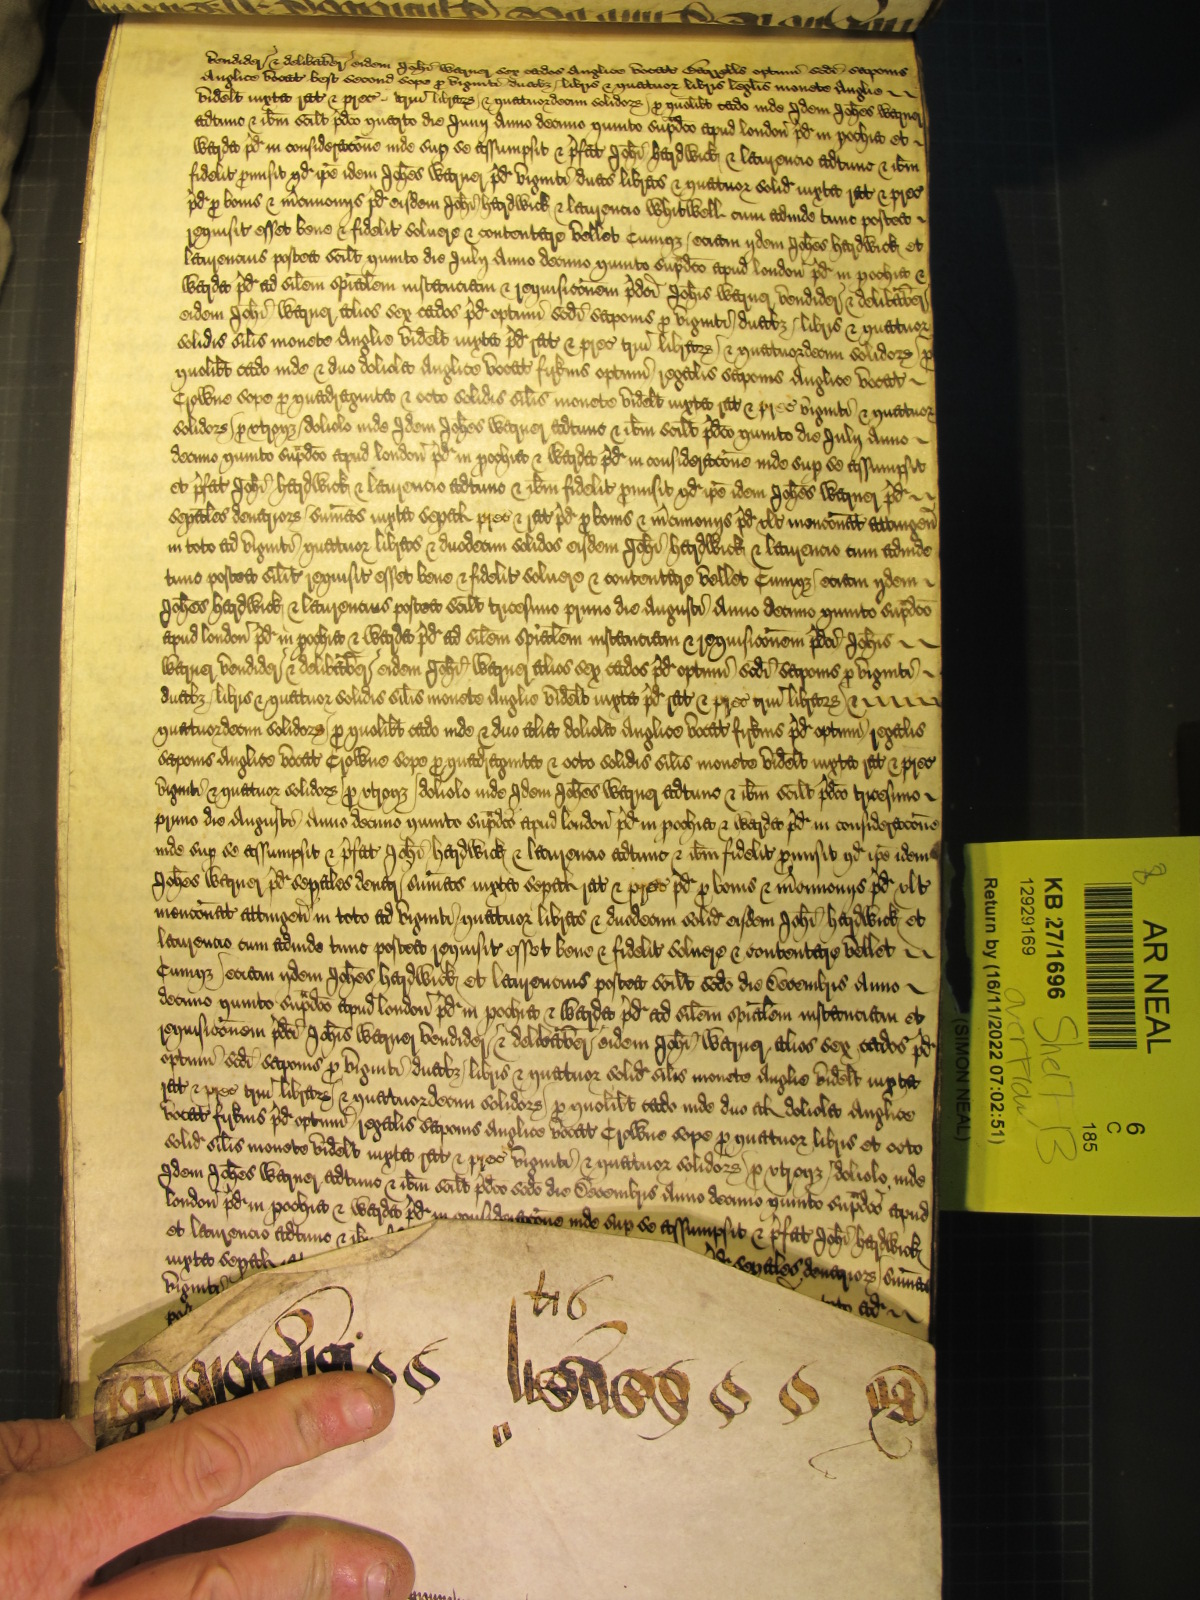 vendider & delibaver eidem Johi Warner sex cados Anglice vocat Barrells optimi scdi saponis
Anglice vocat best second sope p viginti duabz libris & quatuor libris legalis monete Anglie
videlt iuxta rat & prec trium librarz & quatuordecim solidorz p quolibt cado inde Idem Johes Warner
adtunc & ibm scilt pdco quarto die Junij Anno decimo quinto supdco apud london pd in pochia et
warda pd in consideracone inde sup se assumpsit & pfat Johi Hardwick & laurencio adtunc & ibm
fidelit pmisit qd ipe idem Johes Warner pd viginti duas libras & quatuor solid iuxta rat & prec
pd p bonis & mcimonijs pd eisdem Johi Hardwick & laurencio Whitwell cum adinde tunc postea
requisit esset bene & fidelit solvere & contentare vellet Cumqz eciam ijdem Johes Hardwick et
laurencius postea scilt quinto die Julij Anno decimo quinto supdco apud london pd in pochia &
warda pd ad silem spialem instanciam & requisiconem pdci Johis Warner vendider & delibaver
eidem Johi Warner alios sex cados pd optimi scdi saponis p viginti duabz libris & quatuor
solidis silis monete Anglie videlt iuxta pd rat & prec trium librarz & quatuordecim solidorz p
quolibt cado inde & duo doliola Anglice vocat firkins optimi regalis saponis Anglice vocat
Crowne sope p quadraginta & octo solidis silis monete videlt iuxta rat & prec viginti & quatuor
solidorz p utroqz doliolo inde Idem Johes Warner adtunc & ibm scilt pdco quinto die Julij Anno
decimo quinto supdco apud london pd in pochia & warda pd in consideracone inde sup se assumpsit
et pfat Johi Hardwick & laurencio adtunc & ibm fidelit pmisit qd ipe idem Johes Warner pd
sepales denariorz summas iuxta sepal prec & rat pd p bonis & mcimonijs pd ult menconat attingen
in toto ad viginti quatuor libras & duodecim solidos eisdem Johi Hardwick & laurencio cum adinde
tunc postea silit requisit esset bene & fidelit solvere & contentare vellet Cumqz eciam ijdem
Johes Hardwick & laurencius postea scilt tricesimo primo die Augusti Anno decimo quinto supdco
apud london pd in pochia & warda pd ad silem spialem instanciam & requisiconem pdci Johis
Warner vendider & delibaver eidem Johi Warner alios sex cados pd optimi scdi saponis p viginti
duabz libris & quatuor solidis silis monete Anglie videlt iuxta pd rat & prec trium librarz &
quatuordecim solidorz p quolibt cado inde & duo alia doliola Anglice vocat firkins pd optimi regalis
saponis Anglice vocat Crowne sope p quadraginta & octo solidis silis monete videlt iuxta rat & prec
viginti & quatuor solidorz p utroqz doliolo inde Idem Johes Warner adtunc & ibm scilt pdco tricesimo
primo die Augusti Anno decimo quinto supdco apud london pd in pochia & warda pd in consideracone
inde sup se assumpsit & pfat Johi Hardwick & laurencio adtunc & ibm fidelit pmisit qd ipe idem
Johes Warner pd sepales denar summas iuxta sepal rat & prec pd p bonis & mcimonijs pd ult
menconat attingen in toto ad viginti quatuor libras & duodecim solid eisdem Johi Hardwick et
laurencio cum adinde tunc postea requisit esset bene & fidelit solvere & contentare vellet
Cumqz eciam ijdem Johes Hardwick et laurencius postea scilt scdo die Decembris Anno
decimo quinto supdco apud london pd in pochia & warda pd ad silem spialem instanciam et
requisiconem pdci Johis Warner vendider & delibaver eidem Johi Warner alios sex cados pd
optimi scdi saponis p viginti duabz libris & quatuor solid silis monete Anglie videlt iuxta
rat & prec trium librarz & quatuordecim solidorz p quolibt cado inde duo al doliola Anglice
vocat firkins pd optimi regalis saponis Anglice vocat Crowne sope p quatuor libris et octo
solid silis monete videlt iuxta rat & prec viginti & quatuor solidorz p utroqz doliolo inde
Idem Johes Warner adtunc & ibm scilt pdco scdo die Decembris Anno decimo quinto supdco apud
london pd in pochia & warda pd in consideracone inde sup se assumpsit & pfat Johi Hardwick
et laurencio adtunc & ib
iuxta sepal pd sepales denariorz summas
viginti toto ad
AR NEAL
KB 27/1696
12929169
Return by (16/11/2022 07:02:51)
(SIMON NEAL)
6
C
185
8